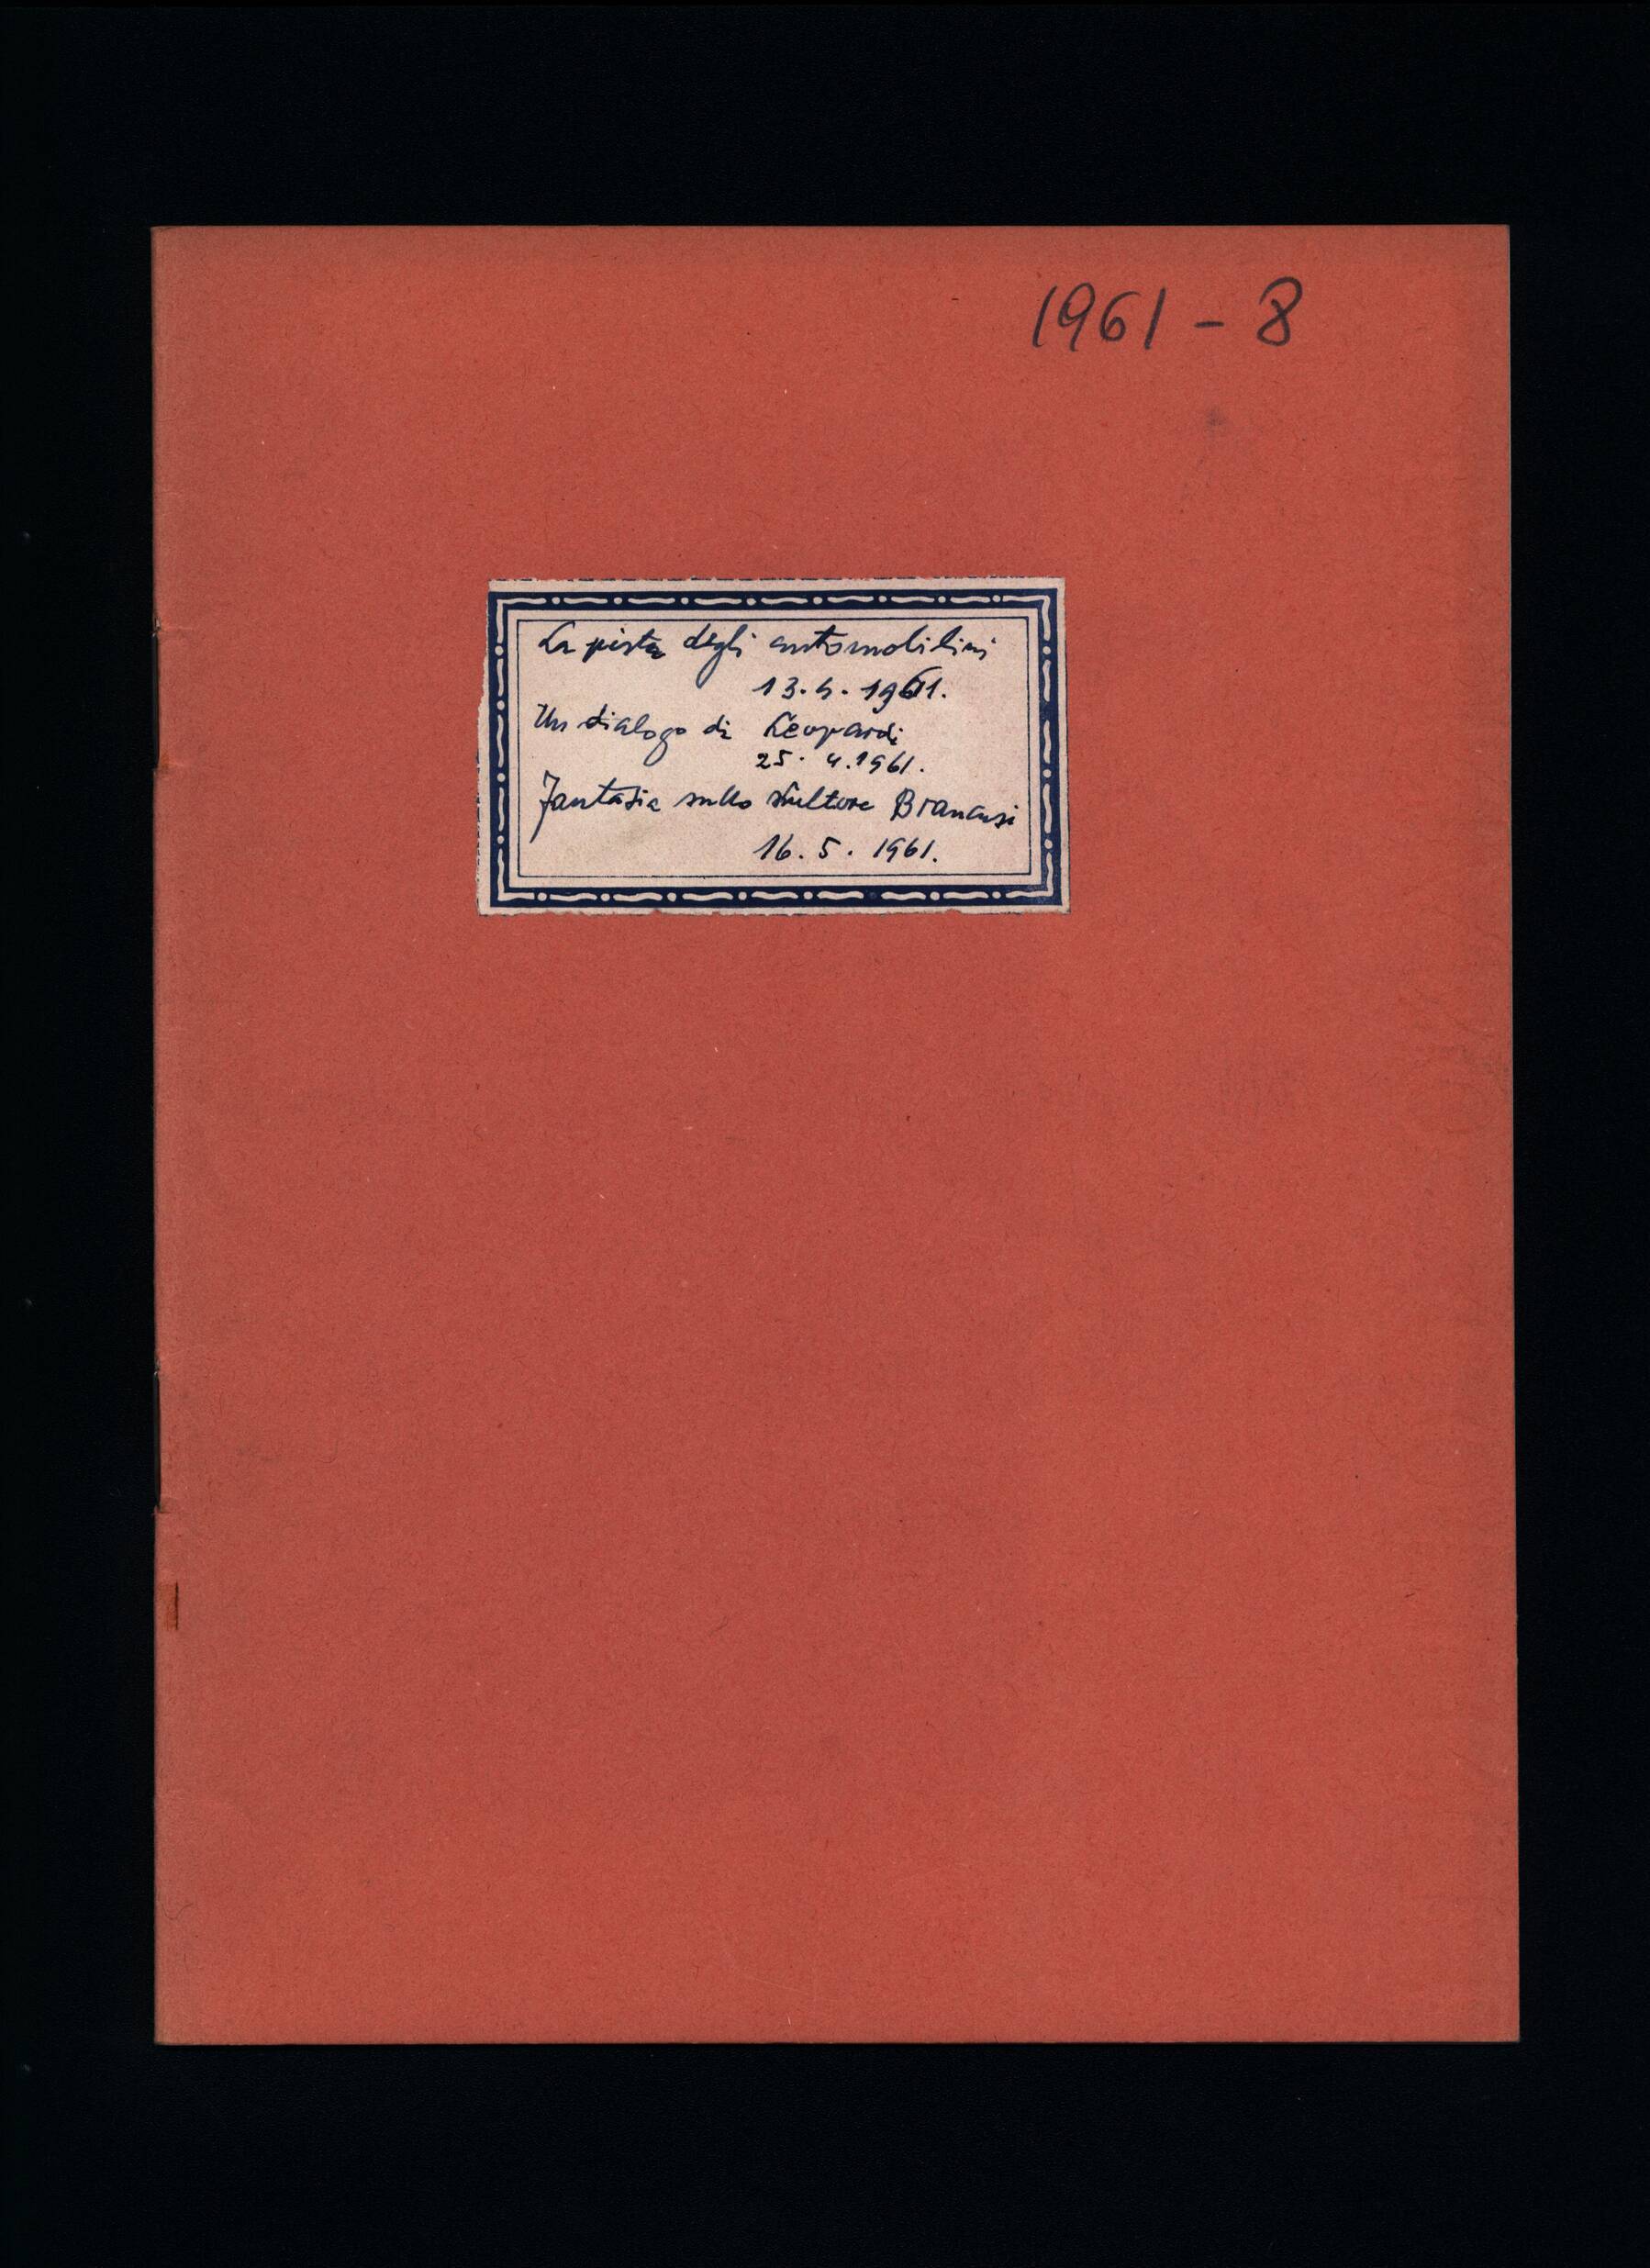 1961 - 8
La pista degli automobilini
13. 4. 1961.
Un dialogo di Leopardi
25. 4. 1961.
Fantasia sullo scultore Brancusi
16. 5. 1961.